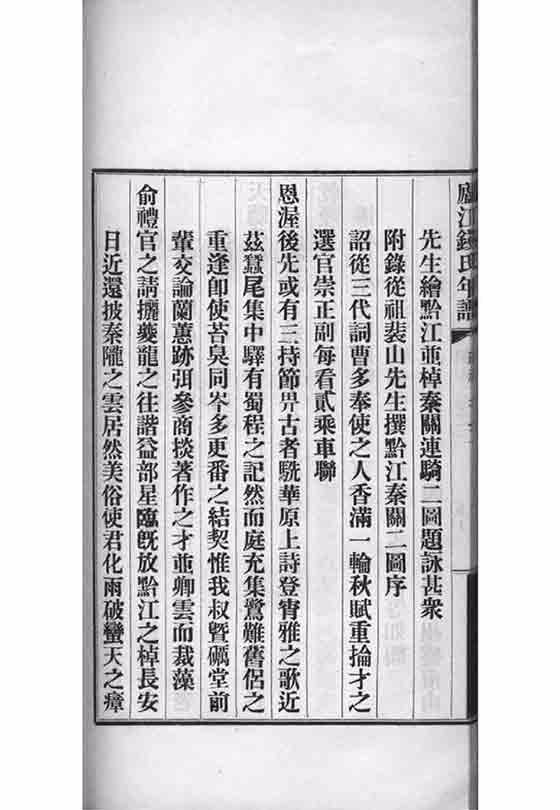 廬江錢氏年譜
先生繪黔江並棹秦關連騎二圖題詠甚衆
附錄從祖裴山先生撰黔江秦關二圖序
詔從三代詞曹多奉使之人香滿一輪秋賦重掄才之
選官崇正副每看貳乘車聯
恩渥後先或有三持節畀古者駪華原上詩登宵雅之歌近
茲蠶尾集中驛有蜀程之記然而庭充集鷺難舊侶之
重逢卽使苔臭同岑多更番之結契惟我叔曁礪堂前
輩交論蘭蕙跡弭參商掞著作之才並卿雲而裁藻
俞禮官之請攦夔龍之往諧益部星臨旣放黔江之棹長安
日近還披秦隴之雲居然美俗使君化雨破蠻天之瘴